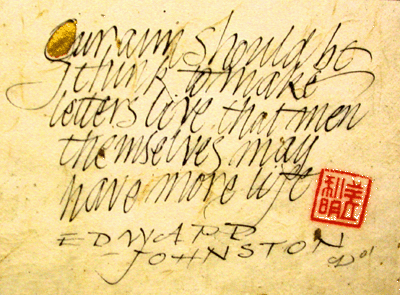 Our aim should be
I think to make
letters live that men
themselves may
have more life
EDWARD
JOHNSTON